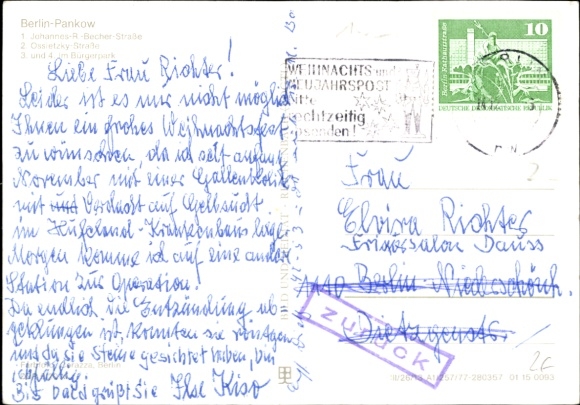 Berlin-Pankow
1 Johannes-R.-Becher-Straße
2 Ossietzky-Straße
3 und 4 im Bürgerpark
Liebe Frau Richter!
Leider ist es mir nicht möglich
Ihnen ein frohes Weihnachtsfest
zu wünschen, da ich seit anfang
November mit einer Gallenkolik
mit und Verdacht auf Gelbsucht
im Hufeland-Krankenhaus liege.
Morgen komme ich auf eine andere
Station zur Operation!
Da endlich die Entzündung ab
geklungen ist, konnten sie röntgen
und da sie Steine gesichtet haben, bin
Bis bald grüßt Sie Ilse Kiso
WEIHNACHTS und
NEUJAHRSPOST
bitte
rechtzeitig
absenden!
10
Berlin, Rathausstraße
DEUTSCHE DEMOKRATISCHE REPUBLIK
Frau
Elvira Richter
Frisörsalon Dauss
1110 Berlin-Niederschönh.
Dietzgenstr.
zurück
280357 01 15 0093